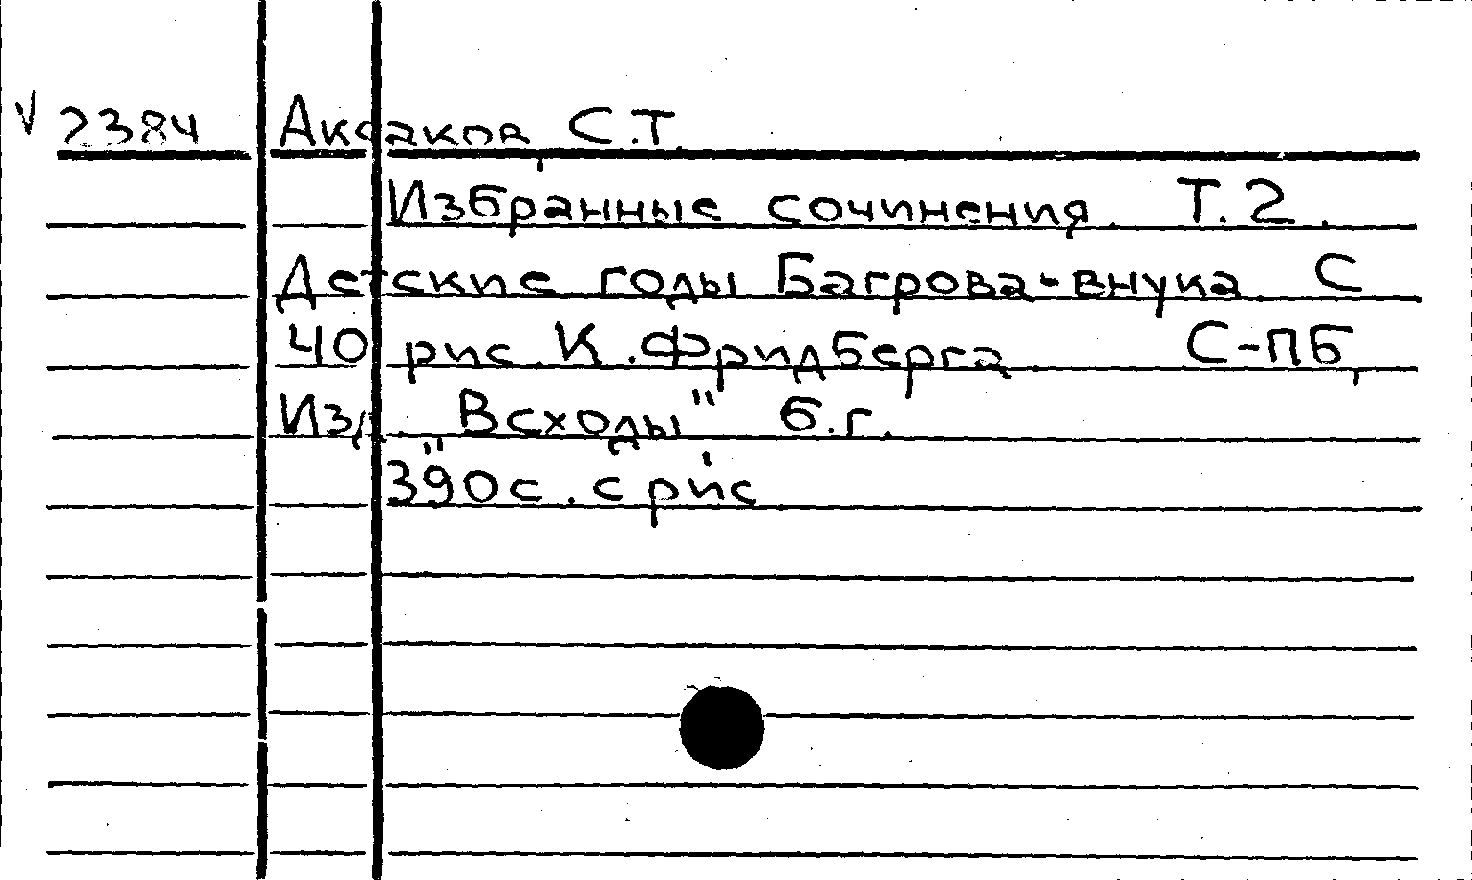 V 2384 Аксаков, С.Т.
Избранные сочинения. Т.2.
Детские годы Багрова-внука. С
40 рис. К.Фридберга. С-ПБ,
Изд. „Всходы" б.г.
390с. с рис